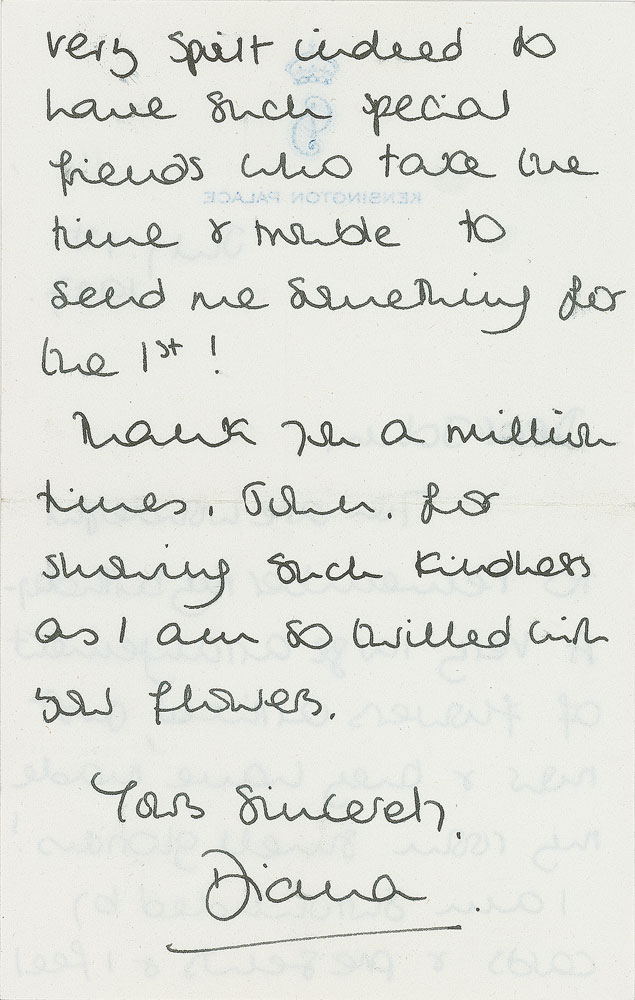 very spoilt indeed to
have such special
friends who take the
time & trouble to
send me something for
the 1st !
Thank you a million
times, John, for
showing such kindness
as I am so thrilled with
your flowers.
Yours Sincerely,
Diana.
KENSINGTON PALACE